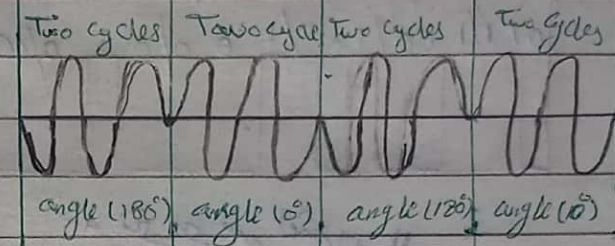 Two cycles Two cycle Two cycles Two cycles
angle (180°) angle (0°) angle (180°) angle (0°)